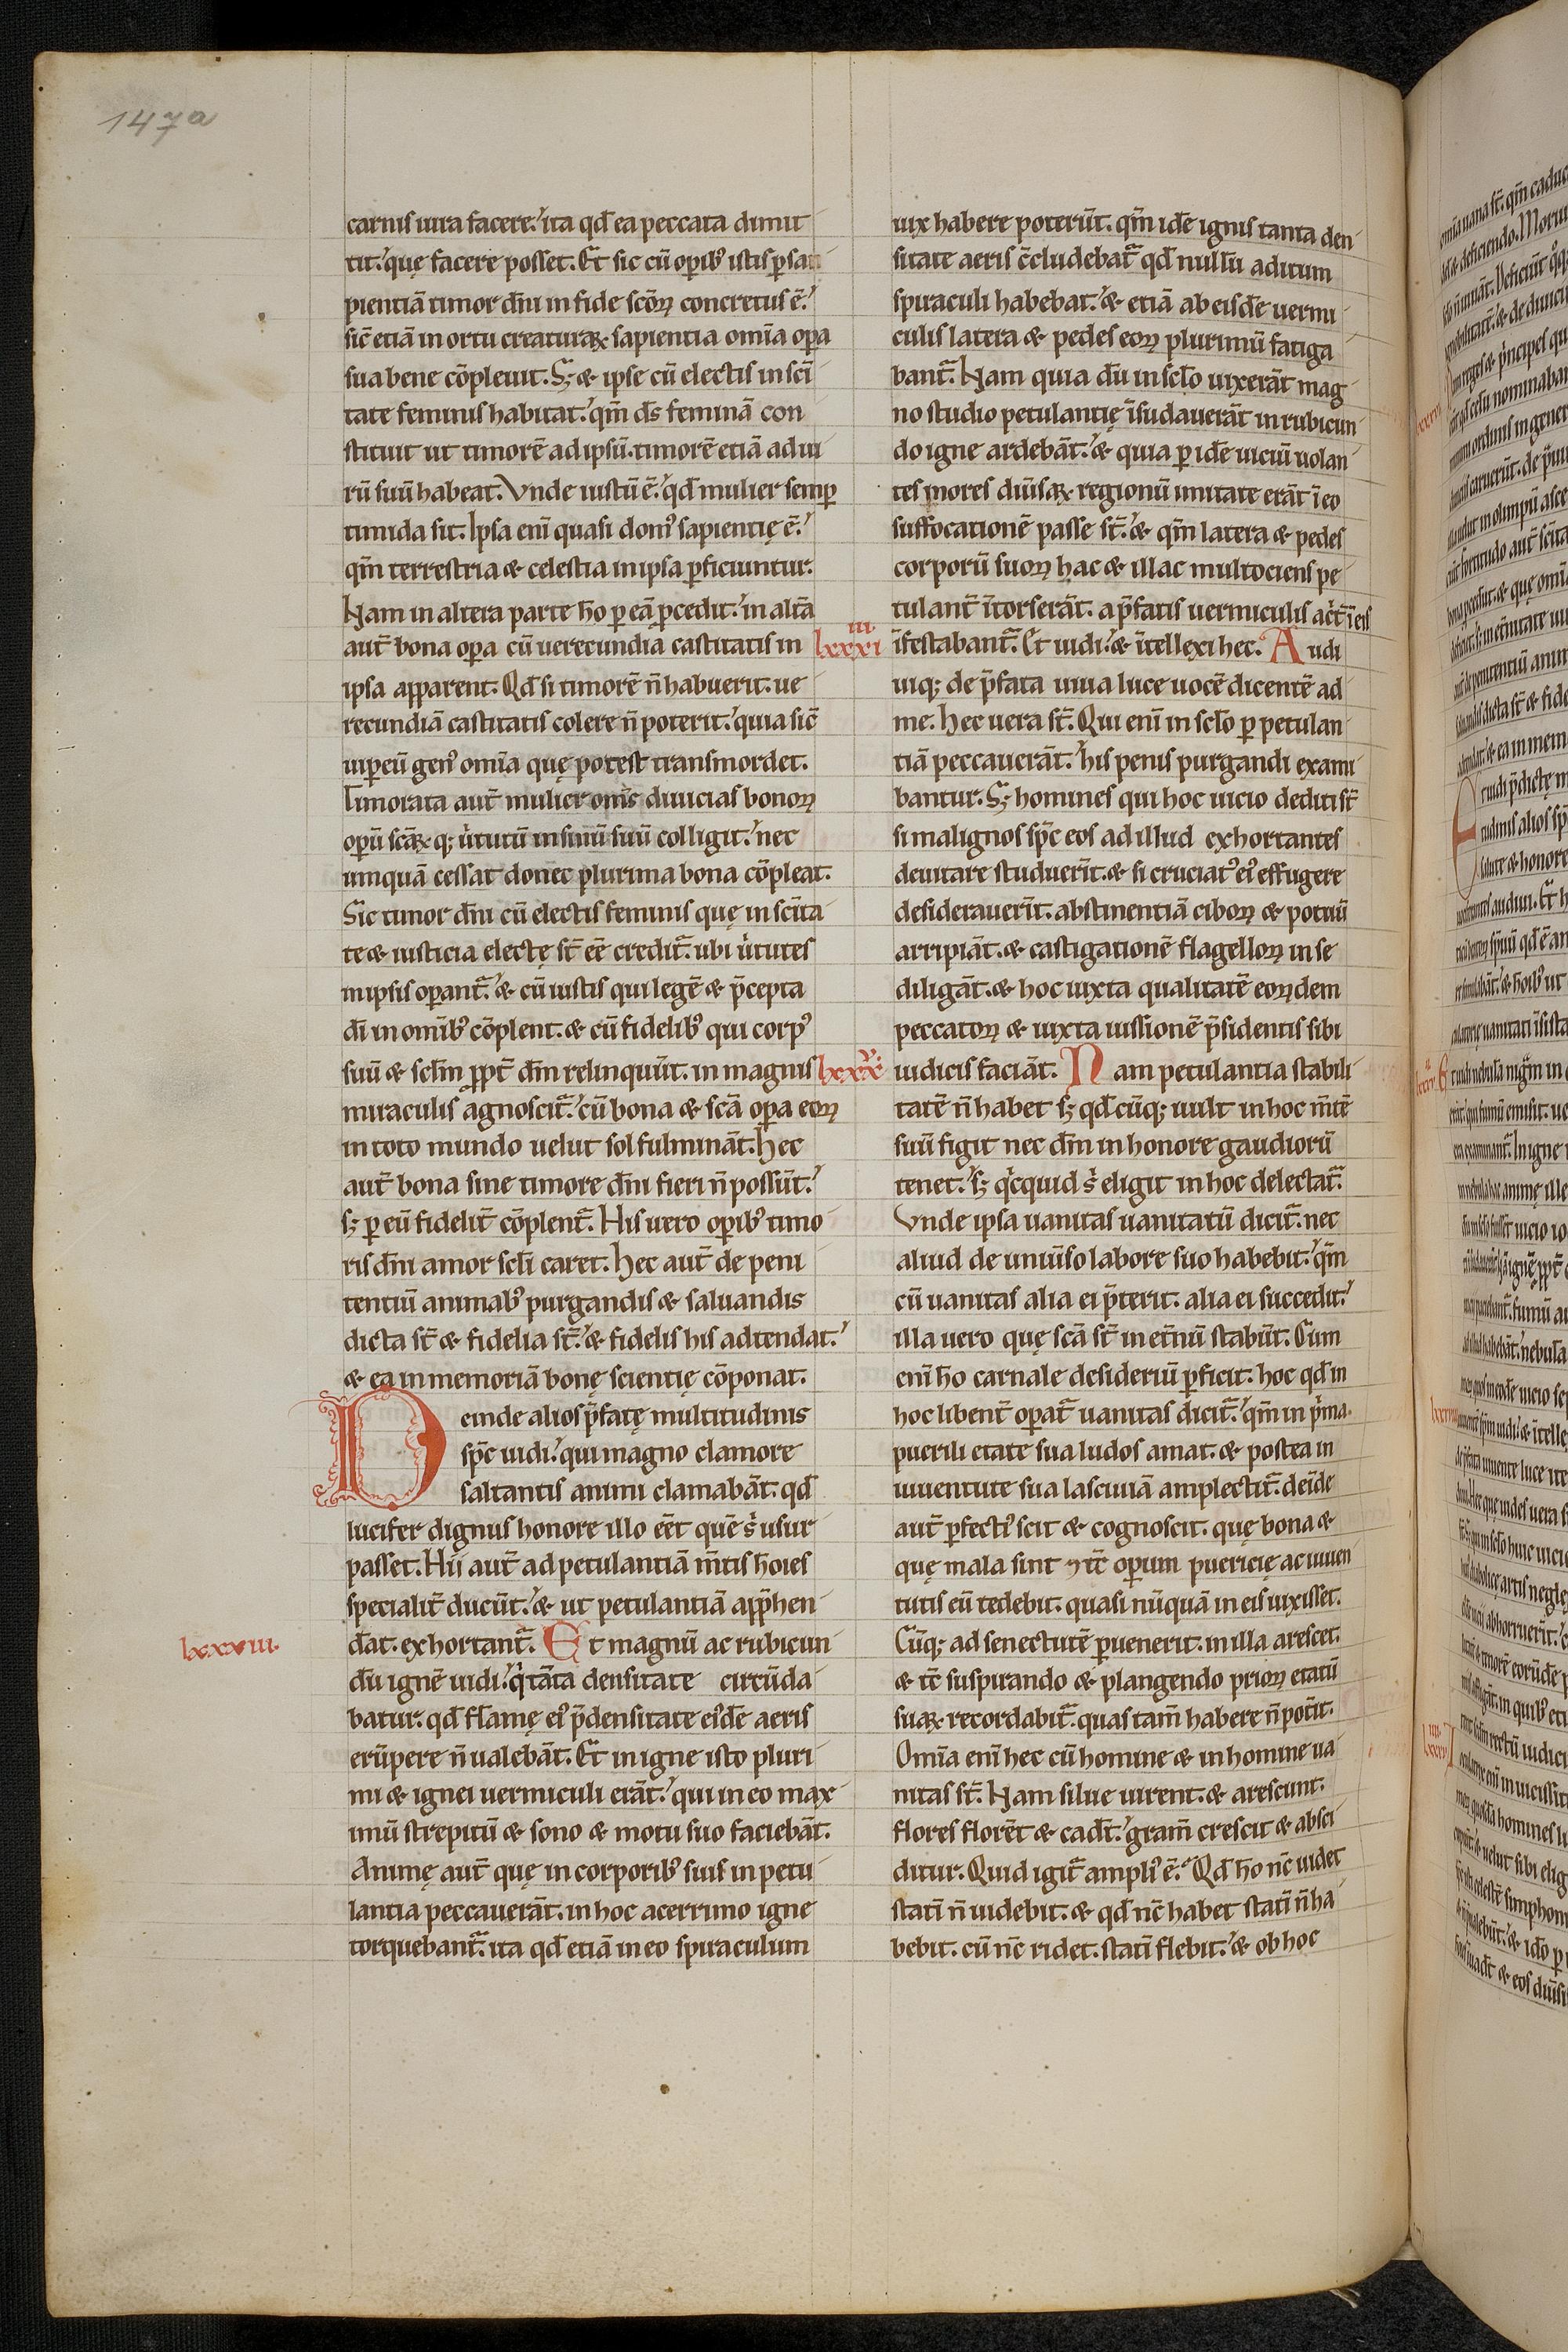 147a
carnis iura facere. ita qd̄ ea peccata dimit
tit. quę facere posset. Et sic cū oꝑibꝰ istis ꝑ sa
pientiā timor dn̄i in fide scōꝝ concretus ē.
sic̄ etiā in ortu creaturaꝝ sapientia om̄ia oꝑa
sua bene cōpleuit. Sꝫ & ipse cū electis in sc̄i
tate feminis habitat. qm̄ ds̄ feminā con
stituit ut timorē ad ipsū. timorē etiā ad ui
rū suū habeat. Vnde iustū ē. qd̄ mulier semꝑ
timida sit. Ipsa eni quasi domꝰ sapientię ē.
qm̄ terrestria & celestia in ipsa ꝑficiuntur.
Nam in altera parte ho̅ ꝑ eā ꝓcedit. in alt̄a
aut̄ bona oꝑa cū uerecundia castitatis in
ipsa apparent. Qd̄ si timorē n̄ habuerit. ue
recundiā castitatis colere n̄ poterit. quia sic̄
uiꝑeū genꝰ om̄ia quę potest transmordet.
Timorata aut̄ mulier om̄s diuicias bonoꝝ
opū scāꝝ qꝫ u̓tutū in sinū suū colligit. nec
umquā cessat donec plurima bona cōpleat.
Sic timor dn̄i cū electis feminis quę in sc̄ita
te & iusticia electę st̄ eē creditᷓ. ubi u̓tutes
in ipsis oꝑantᷓ. & cū iustis qui legē & p̄cepta
dī in om̄ibꝰ cōplent. & cū fidelibꝰ qui corpꝰ
suū & scl̄m ꝓpt̄ dm̄ relinquūt. in magnis
miraculis agnoscitᷓ. cū bona & scā oꝑa eoꝝ
in toto mundo uelut sol fulmināt. Hec
aut̄ bona sine timore dn̄i fieri n̄ possūt.
sꝫ ꝑ eū fidelit̄ cōplentᷓ. His uero oꝑibꝰ timo
ris dn̄i amor scl̄i caret. Hec aut̄ de peni
tentiū animabꝰ purgandis & saluandis
dicta st̄ & fidelia st̄. & fidelis his adtendat.
& ea in memoriā bonę scientię cōponat.
Deinde alios p̄fatę multitudinis
spc̄ uidi. qui magno clamore
saltantis animi clamabāt. qd̄
lucifer dignus honore illo eēt quē s̓ usur
passet. Hij aut̄ ad petulantiā m̄tis hōies
specialit̄ ducūt. & ut petulantiā app̄hen
dāt. exhortantᷓ. Et magnū ac rubicun
lxxxviii.
dū ignē uidi. q̓ tāta densitate circūda
batur. qd̄ flamę eiꝰ p̄ densitate eiꝰdē aeris
erūpere n̄ ualebāt. Et in igne isto pluri
mi & ignei uermiculi erāt. qui in eo max
imū strepitū & sono & motu suo faciebāt.
Animę aut̄ quę in corporibꝰ suis in petu
lantia peccauerāt. in hoc acerrimo igne
torquebantᷓ. ita qd̄ etiā in eo spiraculum
uix habere poterūt. qm̄ idē ignis tanta den
sitate aeris c̄cludebatᷓ qd̄ nullū aditum
spiraculi habebat. & etiā ab eisdē uermi
culis latera & pedes eoꝝ plurimū fatiga
bantᷓ. Nam quia dū in scl̄o uixerāt mag
no studio petulantię īsudauerāt in rubicun
do igne ardebāt. & quia ꝑ idē uiciū uolan
tes mores diūsaꝝ regionū imitate erāt ī eo
suffocationē passe st̄. & qm̄ latera & pedes
corporū suoꝝ hac & illac multociens pe
tulant̄ ītorserāt. a p̄fatis uermiculis ac̓t̄ ī eis
lxxxiiii
īfestabantᷓ. Et uidi. & ītellexi hec. Audi
uiqꝫ de p̄fata uiua luce uocē dicentē ad
me. Hec uera st̄. Qui eni in scl̄o ꝑ petulan
tiā peccauerāt. his penis purgandi exami
bantur. Sꝫ homines qui hoc uicio dediti st̄
si malignos spc̄ eos ad illud exhortantes
deuitare studuerīt. & si cruciatꝰ eiꝰ effugere
desiderauerīt. abstinentiā ciboꝝ & potuū
arripiāt. & castigationē flagelloꝝ in se
diligāt. & hoc iuxta qualitatē eoꝝdem
peccatoꝝ & iuxta iussionē p̄sidentis sibi
iudicis faciāt. Nam petulantia stabili
tatē n̄ habet sꝫ qd̄cūqꝫ uult in hoc m̄tē
suū figit nec dm̄ in honore gaudiorū
tenet. sꝫ q̓cquid s̓ eligit in hoc delectatᷓ.
Vnde ipsa uanitas uanitatū dicitᷓ. nec
aliud de uniūso labore suo habebit. qm̄
cū uanitas alia ei p̄terit. alia ei succedit.
illa uero quę scā st̄ in et̄nū stabūt. Cum
eni ho̅ carnale desideriū ꝑficit. hoc qd̄ in
hoc libent̄ oꝑatᷓ uanitas dicitᷓ. qm̄ in p̓ma
puerili etate sua ludos amat. & postea in
iuuentute sua lasciuiā amplectitᷓ. deīde
aut̄ ꝑfectꝰ scit & cognoscit. quę bona &
quę mala sint ⁊ tc̄ oꝑum puericię ac iuuen
tutis eū tedebit. quasi nūquā in eis uixisset.
Cūqꝫ ad senectutē ꝑuenerit. in illa arescet.
& tc̄ suspirando & plangendo prioꝝ etatū
suaꝝ recordabitᷓ. quas tam̄ habere n̄ pot̄it.
Om̄ia eni hec cū homine & in homine ua
nitas st̄. Nam silue uirent. & arescunt.
flores florēt & cadt̄. gram̄ crescit & absci
ditur. Quid igitᷓ ampliꝰ ē. Qd̄ ho̅ nc̄ uidet
statī n̄ uidebit. & qd̄ nc̄ habet statī n̄ ha
bebit. cū nc̄ ridet. statī flebit. & ob hoc